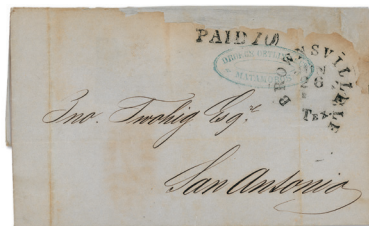 PAID 10
BROWNSVILLE
26
TEX
MATAMOROS
Jno. Twohig Esqr.
San Antonio